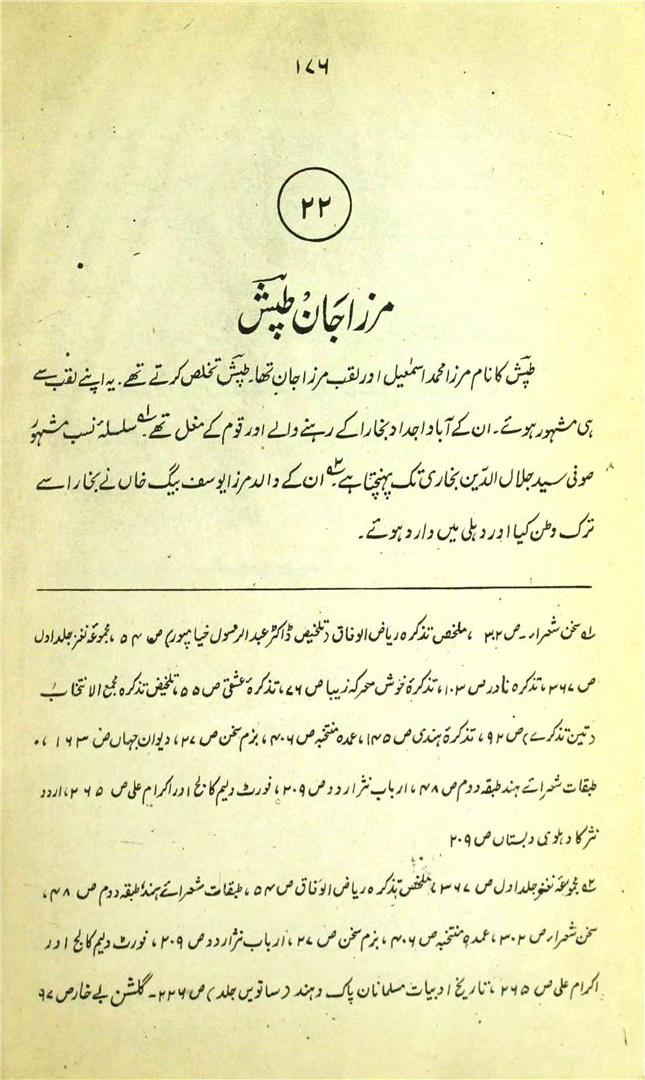 ۱۷۶
۲۲
مرزا جان طپش
طپش کا نام مرزا محمد اسمٰعیل اور لقب مرزا جان تھا۔ طپش تخلص کرتے تھے۔ یہ اپنے لقب سے
ہی مشہور ہوئے۔ ان کے آباد اجداد بخارا کے رہنے والے اور قوم کے مغل تھے۔۱ سلسلۂ نسب مشہور
صوفی سید جلال الدّین بخاری تک پہنچتا ہے۔۲ ان کے والد مرزا یوسف بیگ خاں نے بخارا سے
ترک وطن کیا اور دہلی میں وارد ہوئے۔
۱؎ سخن شعراء۔ ص ۳۰۲ ، ملخص تذکرہ ریاض الوفاق (تلخیص ڈاکٹر عبدالرسول خیامپور) ص ۵۴ ، مجموعۂ نغز جلد اول
ص ۳۶۷، تذکرہ نادر ص ۱۰۳، تذکرۂ خوش معرکہ زیبا ص ۷۶، تذکرۂ عشقی ص ۵۵، تلخیص تذکرہ مجمع الانتخاب
(تین تذکرے) ص ۹۲، تذکرۂ ہندی ص ۱۴۵، عمدہ منتخبہ ص ۴۰۶، بزم سخن ص ۲۷، دیوان جہاں ص ۱۶۳ ،
طبقات شعرائے ہند طبقہ دوم ص ۴۸، ارباب نثر اردو ص ۲۰۹، فورٹ ولیم کالج اور اکرام علی ص ۲۶۵، اردو
نثر کا دہلوی دبستاں ص ۲۰۹
۲؎ مجموعۂ نغز جلد اول ص ۳۶۷، ملخص تذکرہ ریاض الوفاق ص ۵۴، طبقات شعرائے ہند طبقہ دوم ص ۴۸،
سخن شعراء ص ۳۰۲، عمدہ منتخبہ ص ۴۰۶، بزم سخن ص ۲۷، ارباب نثر اردو ص ۲۰۹، فورٹ ولیم کالج اور
اکرام علی ص ۲۶۵، تاریخ ادبیات مسلمانان پاک و ہند (ساتویں جلد) ص ۲۲۶۔ گلشن بے خار ص ۹۷